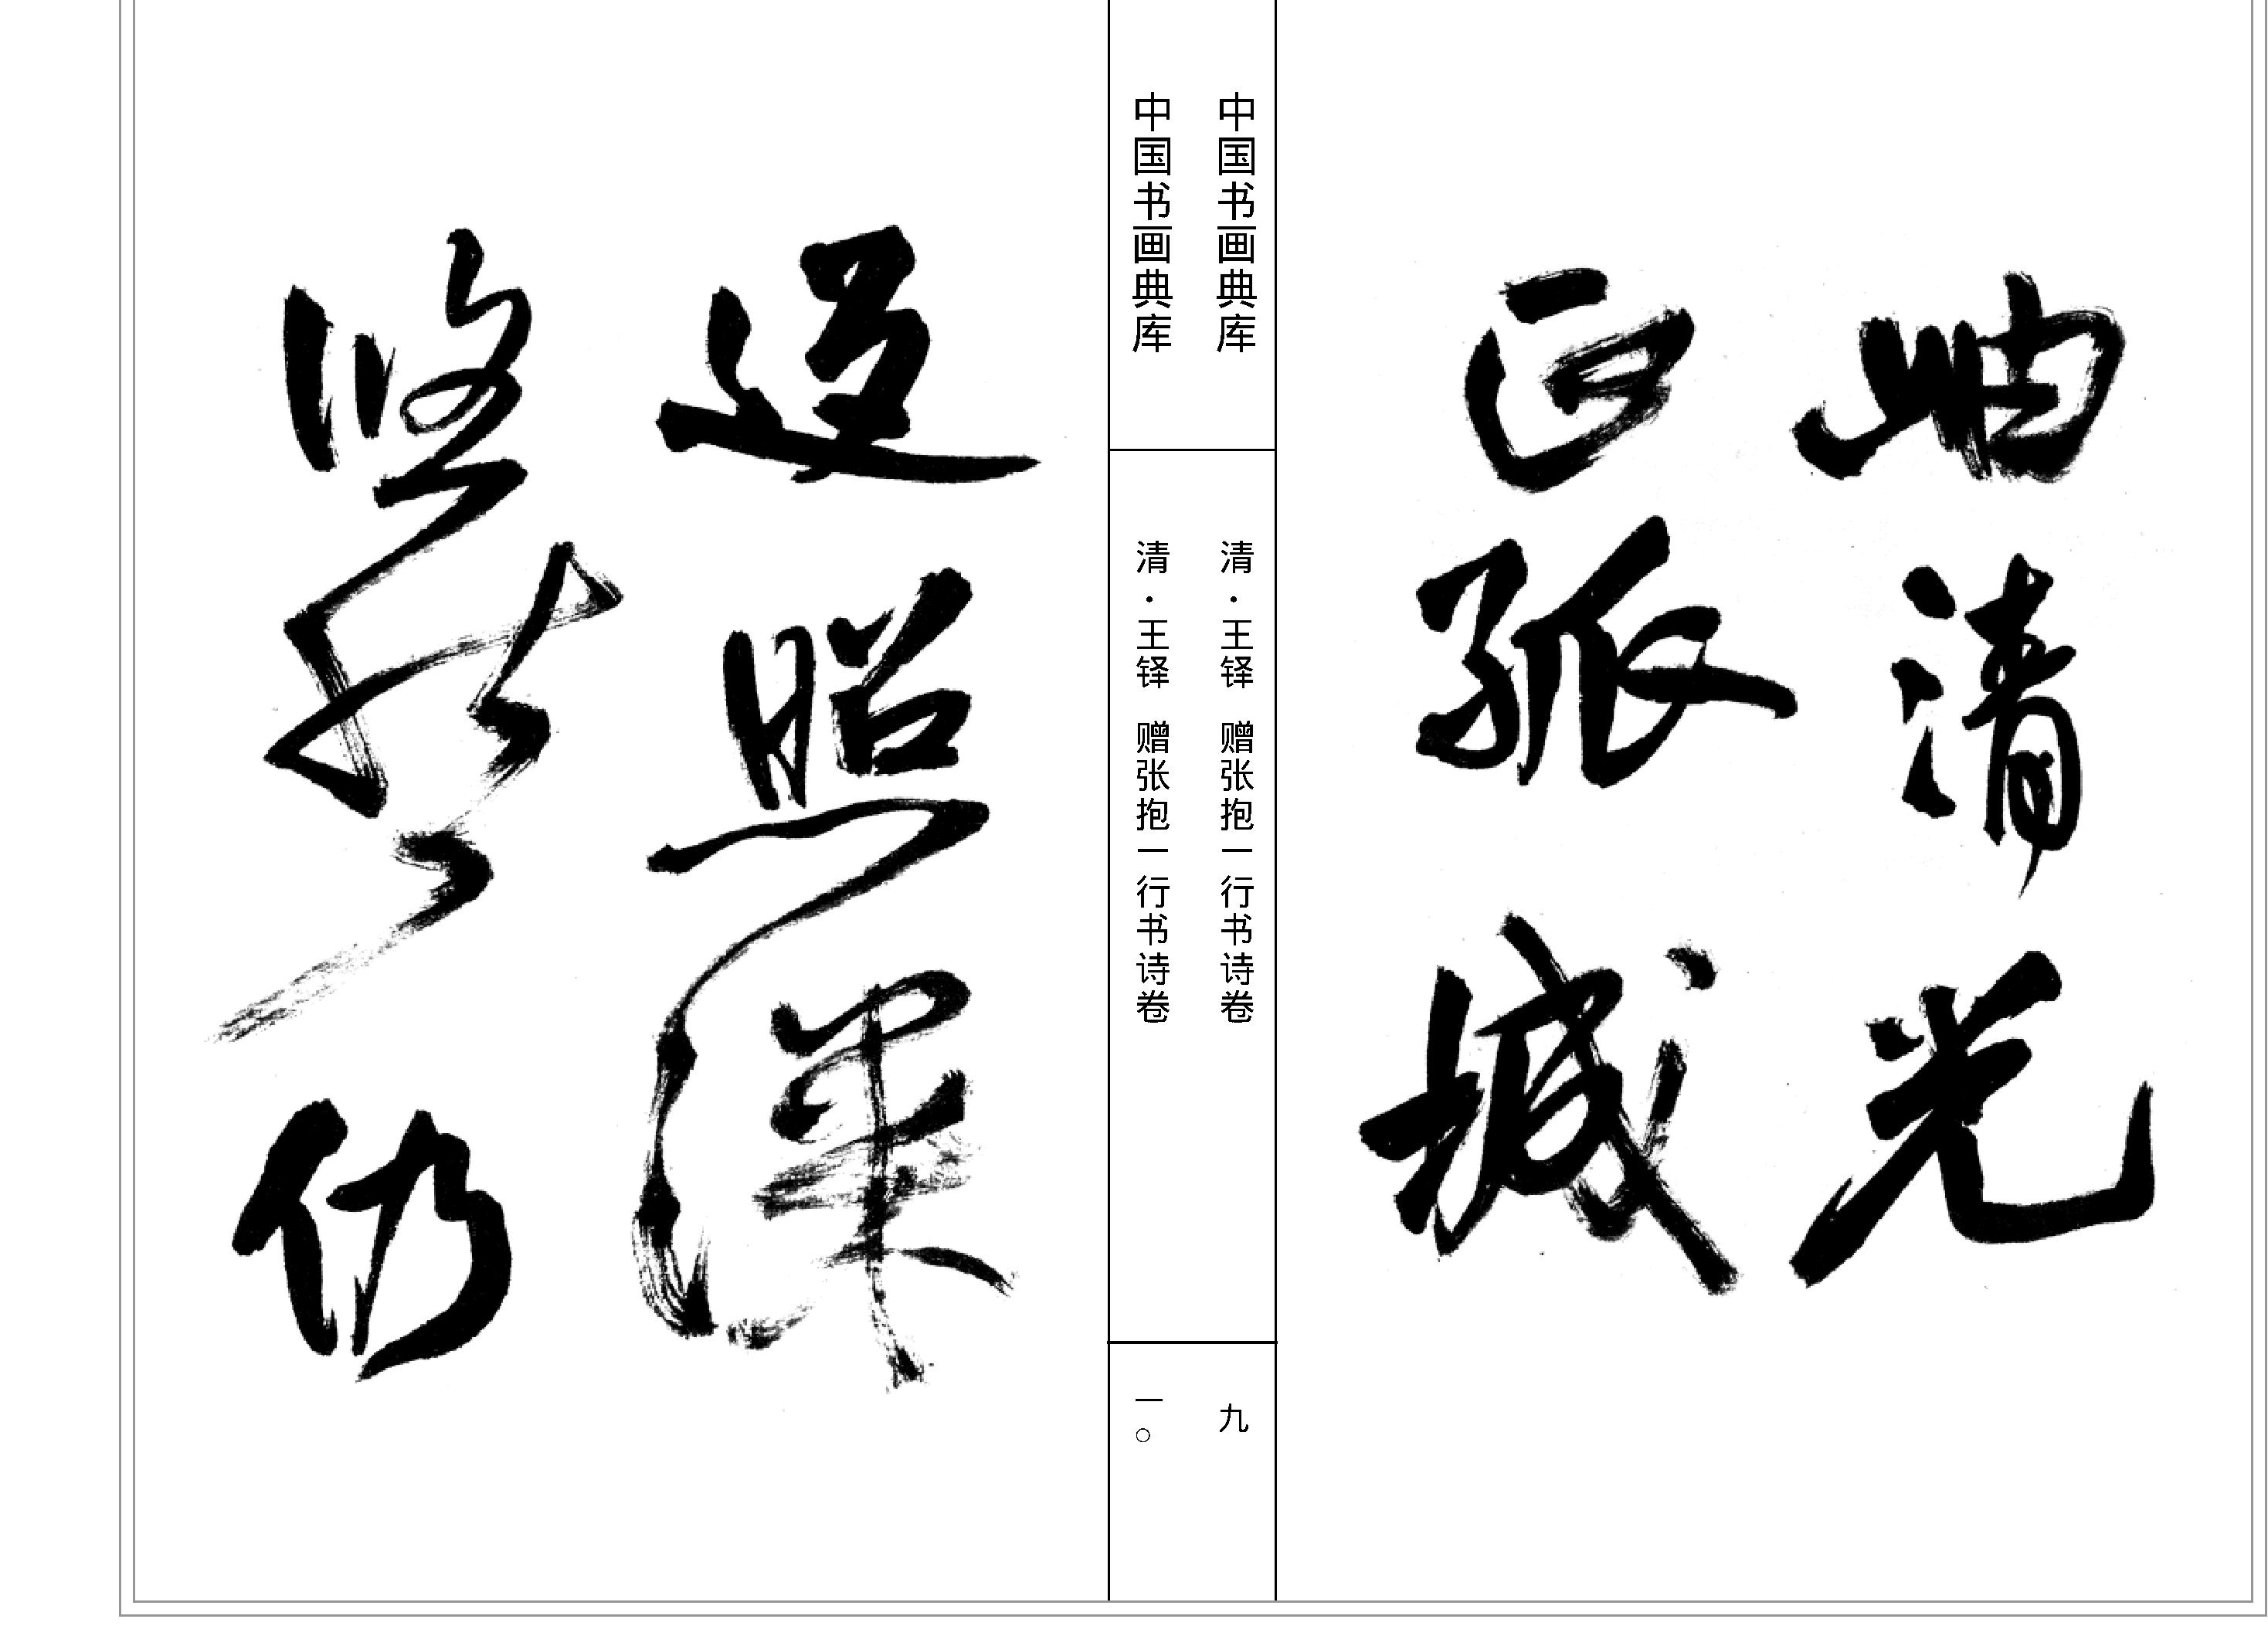 岫清光
孤城
中国书画典库
清·王铎 赠张抱一行书诗卷
九
中国书画典库
清·王铎 赠张抱一行书诗卷
一〇
照
悠然仍